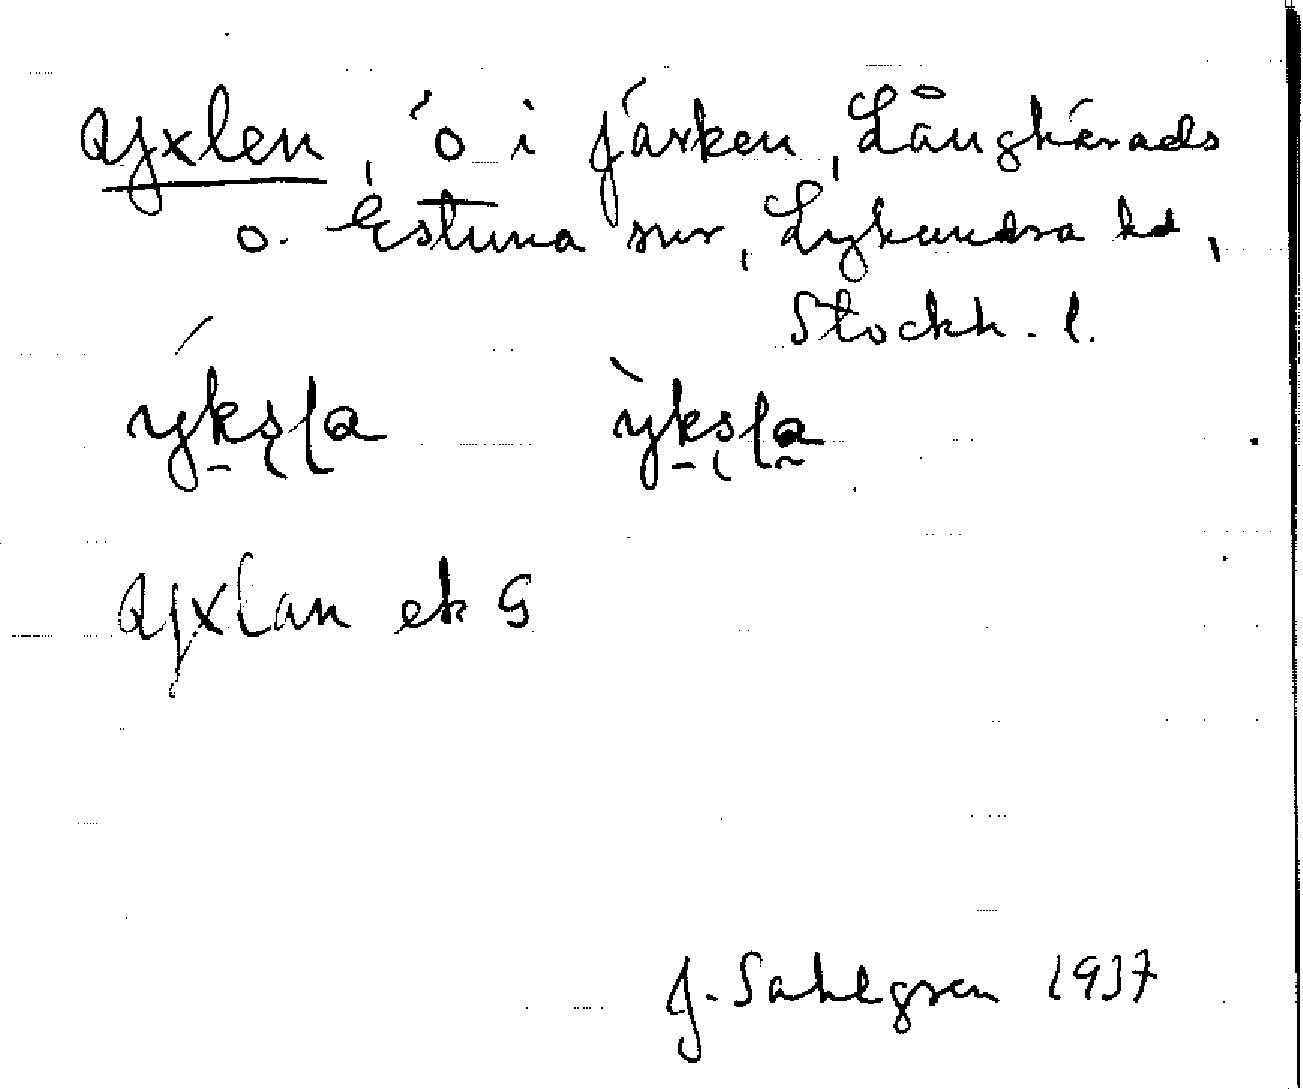 Yxlen, ö i Järken, Långhärads
o. Estuna snr, Lyhundra hd,
Stockh. l.
ýksļa ỳksļa
Yxlan ek G
J. Sahlgren 1937